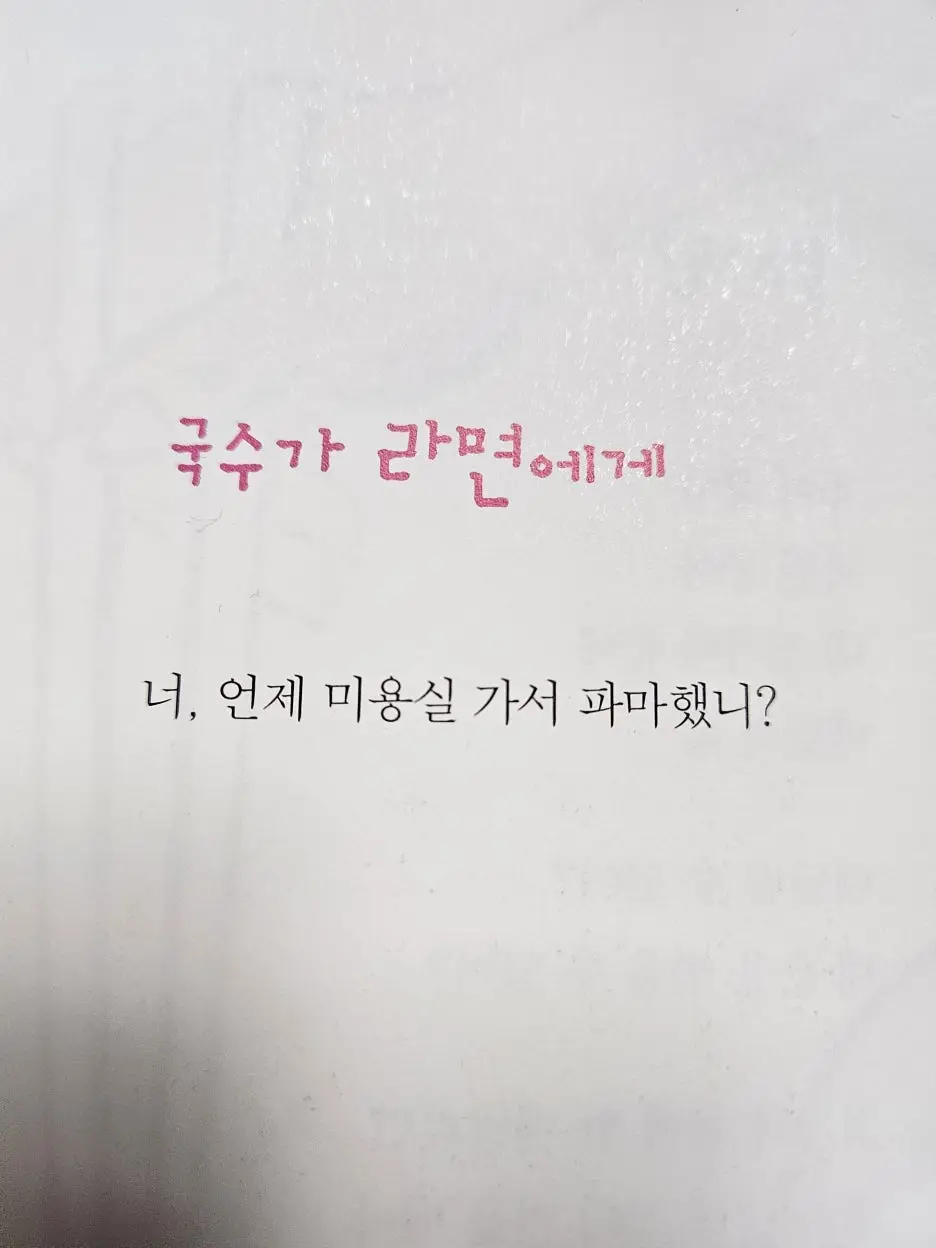 국수가 라면에게
너, 언제 미용실 가서 파마했니?